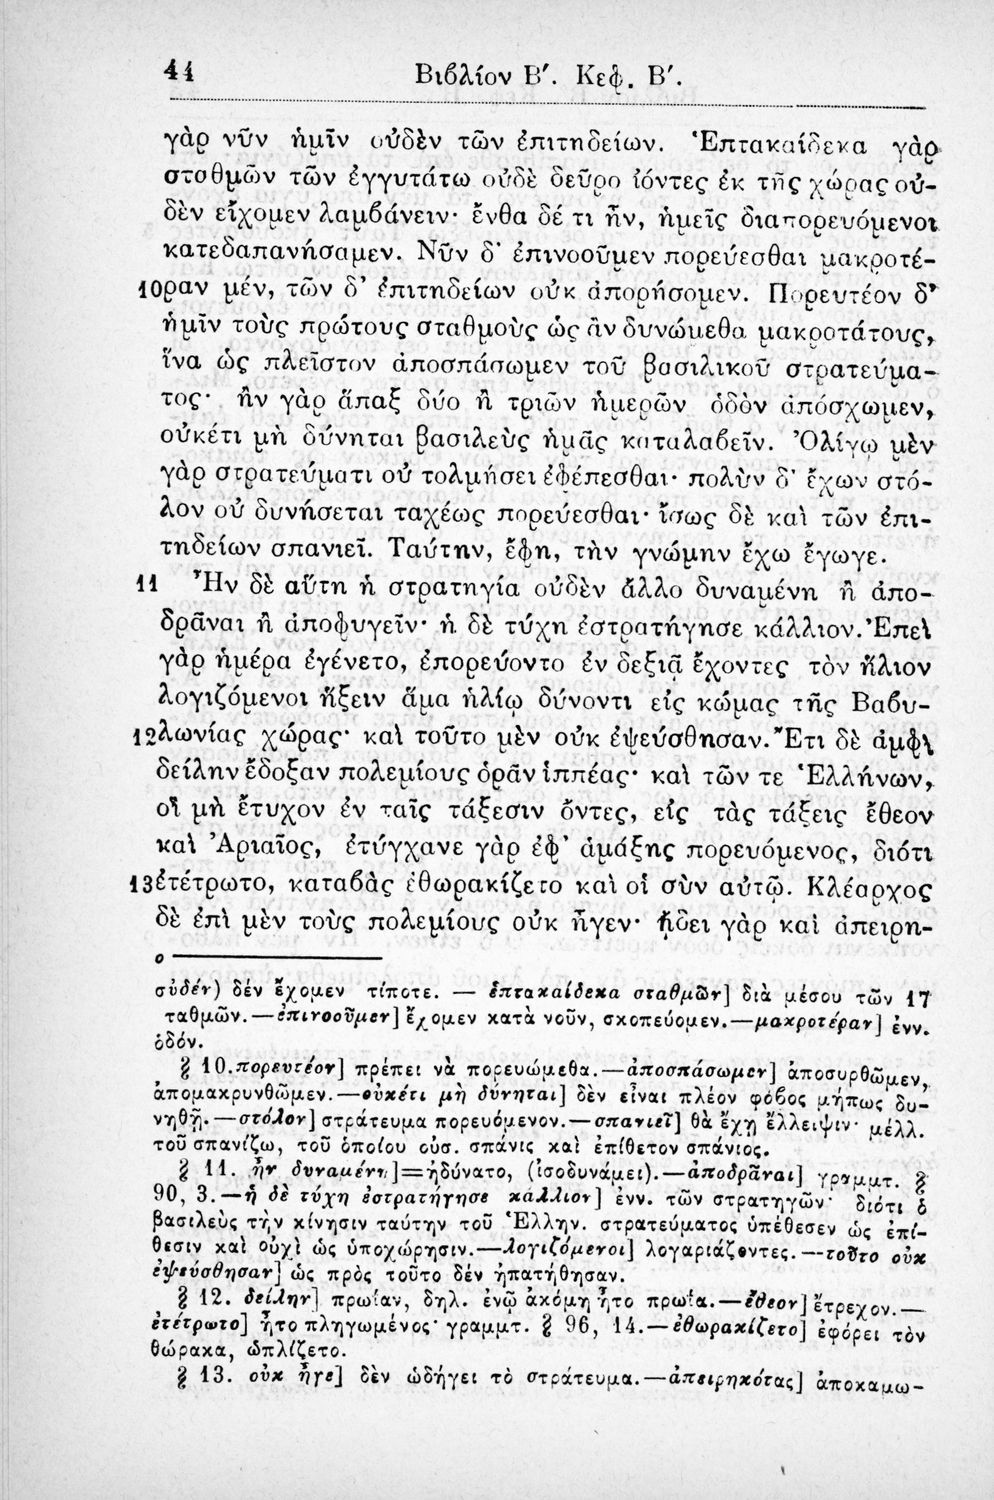 44 Βιβλίον Β'. Κεφ. Β'.
γὰρ νῦν ἡμῖν οὐδὲν τῶν ἐπιτηδείων. Ἑπτακαίδεκα γὰρ
σταθμῶν τῶν ἐγγυτάτω οὐδὲ δεῦρο ἰόντες ἐκ τῆς χώρας οὐ-
δὲν εἴχομεν λαμβάνειν· ἔνθα δέ τι ἦν, ἡμεῖς διαπορευόμενοι
κατεδαπανήσαμεν. Νῦν δ' ἐπινοοῦμεν πορεύεσθαι μακροτέ-
10 ραν μέν, τῶν δ' ἐπιτηδείων οὐκ ἀπορήσομεν. Πορευτέον δ'
ἡμῖν τοὺς πρώτους σταθμοὺς ὡς ἂν δυνώμεθα μακροτάτους,
ἵνα ὡς πλεῖστον ἀποσπάσωμεν τοῦ βασιλικοῦ στρατεύμα-
τος· ἢν γὰρ ἅπαξ δύο ἢ τριῶν ἡμερῶν ὁδὸν ἀπόσχωμεν,
οὐκέτι μὴ δύνηται βασιλεὺς ἡμᾶς καταλαβεῖν. Ὀλίγῳ μὲν
γὰρ στρατεύματι οὐ τολμήσει ἐφέπεσθαι· πολὺν δ' ἔχων στό-
λον οὐ δυνήσεται ταχέως πορεύεσθαι· ἴσως δὲ καὶ τῶν ἐπι-
τηδείων σπανιεῖ. Ταύτην, ἔφη, τὴν γνώμην ἔχω ἔγωγε.
11 Ἦν δὲ αὕτη ἡ στρατηγία οὐδὲν ἄλλο δυναμένη ἢ ἀπο-
δρᾶναι ἢ ἀποφυγεῖν· ἡ δὲ τύχη ἐστρατήγησε κάλλιον. Ἐπεὶ
γὰρ ἡμέρα ἐγένετο, ἐπορεύοντο ἐν δεξιᾷ ἔχοντες τὸν ἥλιον
λογιζόμενοι ἥξειν ἅμα ἡλίῳ δύνοντι εἰς κώμας τῆς Βαβυ-
12 λωνίας χώρας· καὶ τοῦτο μὲν οὐκ ἐψεύσθησαν. Ἔτι δὲ ἀμφὶ
δείλην ἔδοξαν πολεμίους ὁρᾶν ἱππέας· καὶ τῶν τε Ἑλλήνων,
οἳ μὴ ἔτυχον ἐν ταῖς τάξεσιν ὄντες, εἰς τὰς τάξεις ἔθεον
καὶ Ἀριαῖος, ἐτύγχανε γὰρ ἐφ' ἁμάξης πορευόμενος, διότι
13 ἐτέτρωτο, καταβὰς ἐθωρακίζετο καὶ οἱ σὺν αὐτῷ. Κλέαρχος
δὲ ἐπὶ μὲν τοὺς πολεμίους οὐκ ἦγεν· ᾔδει γὰρ καὶ ἀπειρη-
οὐδέν) δέν ἔχομεν τίποτε. — ἑπτακαίδεκα σταθμῶν] διὰ μέσου τῶν 17
ταθμῶν.—ἐπινοοῦμεν] ἔχομεν κατὰ νοῦν, σκοπεύομεν.—μακροτέραν] ἐνν.
ὁδόν.
§ 10. πορευτέον] πρέπει νὰ πορευώμεθα.—ἀποσπάσωμεν] ἀποσυρθῶμεν,
ἀπομακρυνθῶμεν.—οὐκέτι μὴ δύνηται] δὲν εἶναι πλέον φόβος μήπως δυ-
νηθῇ.—στόλον] στράτευμα πορευόμενον.—σπανιεῖ] θὰ ἔχῃ ἔλλειψιν· μέλλ.
τοῦ σπανίζω, τοῦ ὁποίου οὐσ. σπάνις καὶ ἐπίθετον σπάνιος.
§ 11. ἦν δυναμένη]=ἠδύνατο, (ἰσοδυνάμει).—ἀποδρᾶναι] γραμμτ. §
90, 3.—ἡ δὲ τύχη ἐστρατήγησε κάλλιον] ἐνν. τῶν στρατηγῶν· διότι ὁ
βασιλεὺς τὴν κίνησιν ταύτην τοῦ Ἑλλην. στρατεύματος ὑπέθεσεν ὡς ἐπί-
θεσιν καὶ οὐχὶ ὡς ὑποχώρησιν.—λογιζόμενοι] λογαριάζοντες.—τοῦτο οὐκ
ἐψεύσθησαν] ὡς πρὸς τοῦτο δέν ἠπατήθησαν.
§ 12. δείλην] πρωΐαν, δηλ. ἐνῷ ἀκόμη ἦτο πρωΐα.—ἔθεον] ἔτρεχον.—
ἐτέτρωτο] ἦτο πληγωμένος· γραμμτ. § 96, 14.—ἐθωρακίζετο] ἐφόρει τὸν
θώρακα, ὡπλίζετο.
§ 13. οὐκ ἦγε] δὲν ὡδήγει τὸ στράτευμα.—ἀπειρηκότας] ἀποκαμω-